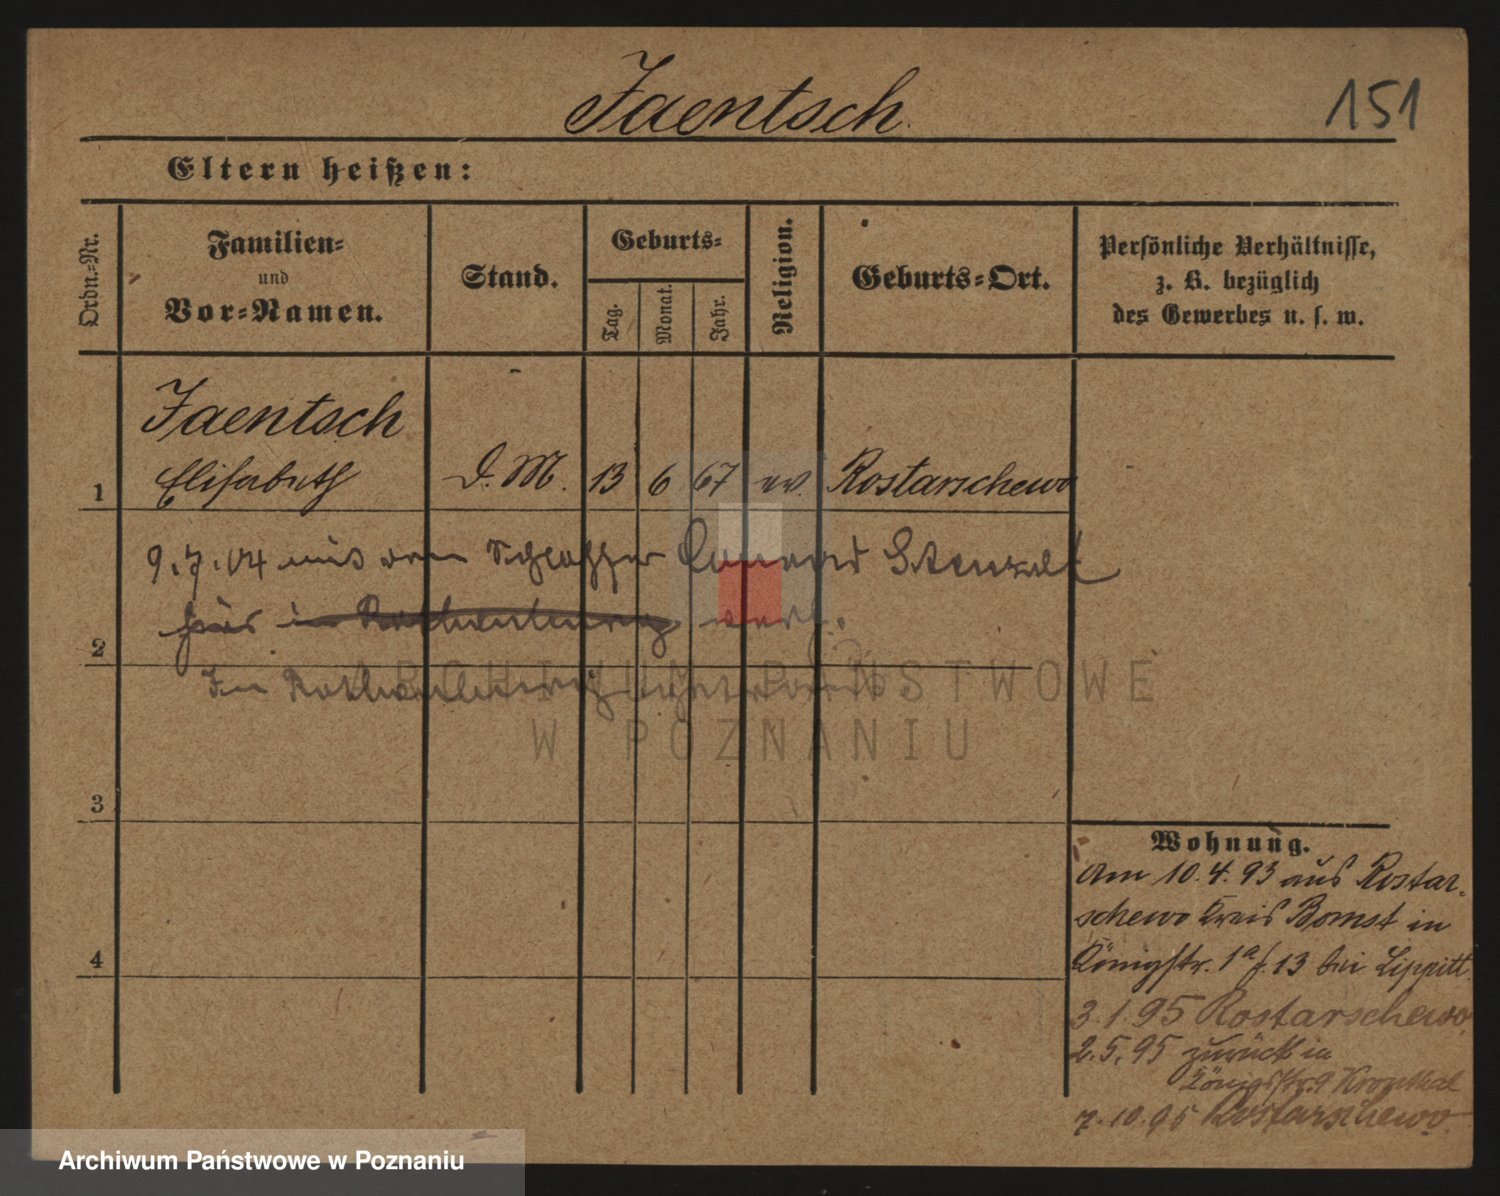 Jaentsch.
151
Eltern heißen:
Ordn.-Nr.
Familien-
und
Vor-Namen.
Stand.
Geburts-
Tag.
Monat.
Jahr.
Religion.
Geburts-Ort.
Persönliche Verhältnisse,
z. B. bezüglich
des Gewerbes u. s. w.
Jaentsch
1 Elisabeth D. M. 13 6 67 ev. Rostarschewo
9.7.04 mit dem Schlosser Conrad Stenzel
2 hier in Rothenburg verh.
In Rothenburg
ARCHIWUM PAŃSTWOWE
W POZNANIU
3
4
Wohnung.
Am 10.4.93 aus Rostar-
schewo Kreis Bomst in
Königstr. 1a/f. 13 bei Lippitt.
3.1.95 Rostarschewo
2.5.95 zurück in
Königstr. 9 Kronthal
7.10.95 Rostarschewo.
Archiwum Państwowe w Poznaniu